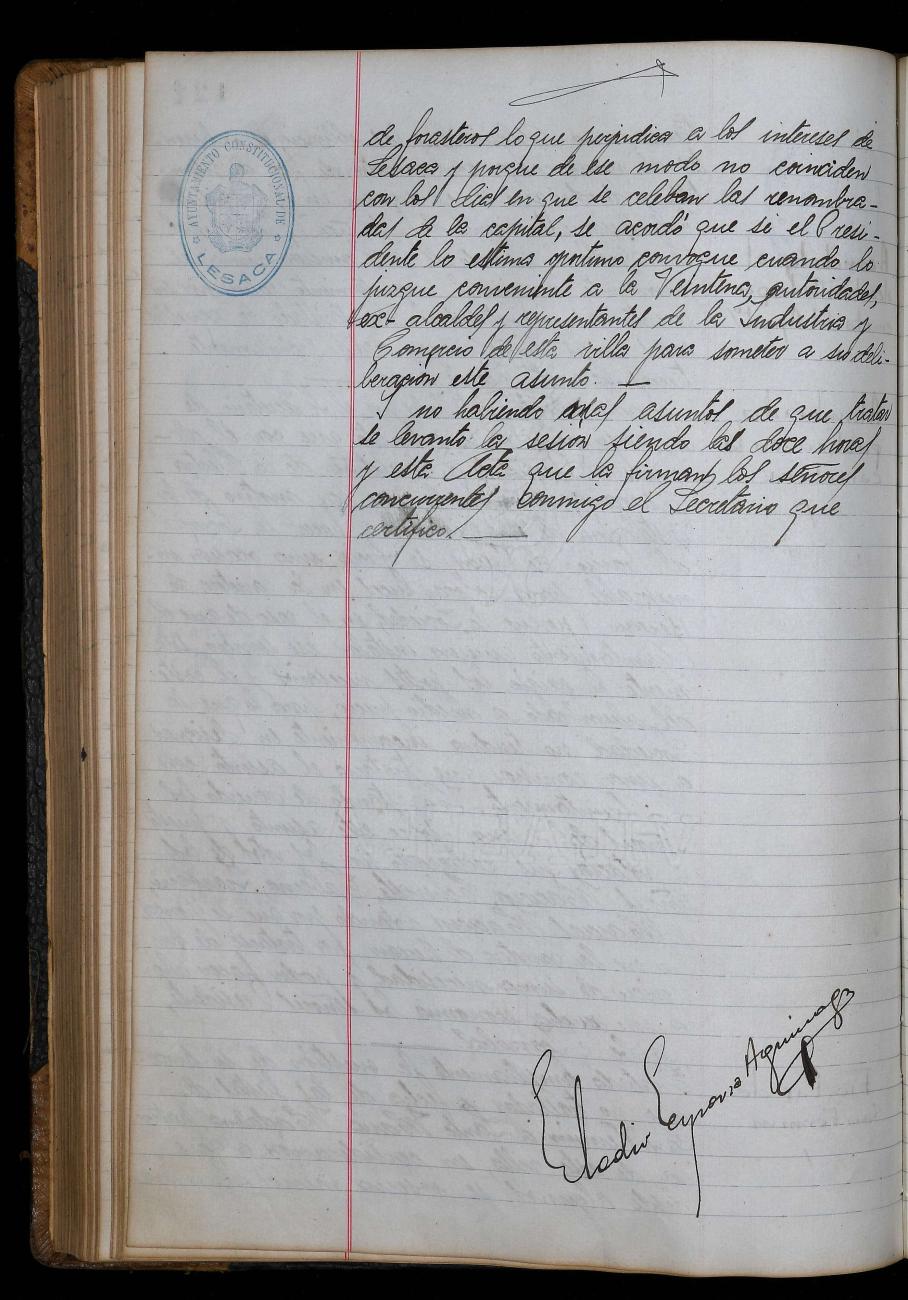 AYUNTAMIENTO CONSTITUCIONAL DE
LESACA
de forasteros lo que perjudica a los intereses de
Lesaca y porque de ese modo no coinciden
con los dias en que se celeban las renombra-
das de la capital, se acordó que si el Presi-
dente lo estima oportuno convoque cuando lo
juzgue conveniente a la Veintena, autoridades,
ex-alcaldes y representantes de la Industria y
Comercio de esta villa para someter a su deli-
beración este asunto. —
Y no habiendo mas asuntos de que tratar
se levanto la sesión siendo las doce horas
y esta Acta que la firman los señores
concurrentes conmigo el Secretario que
certifico. —
Eladio Esparza Aguinaga